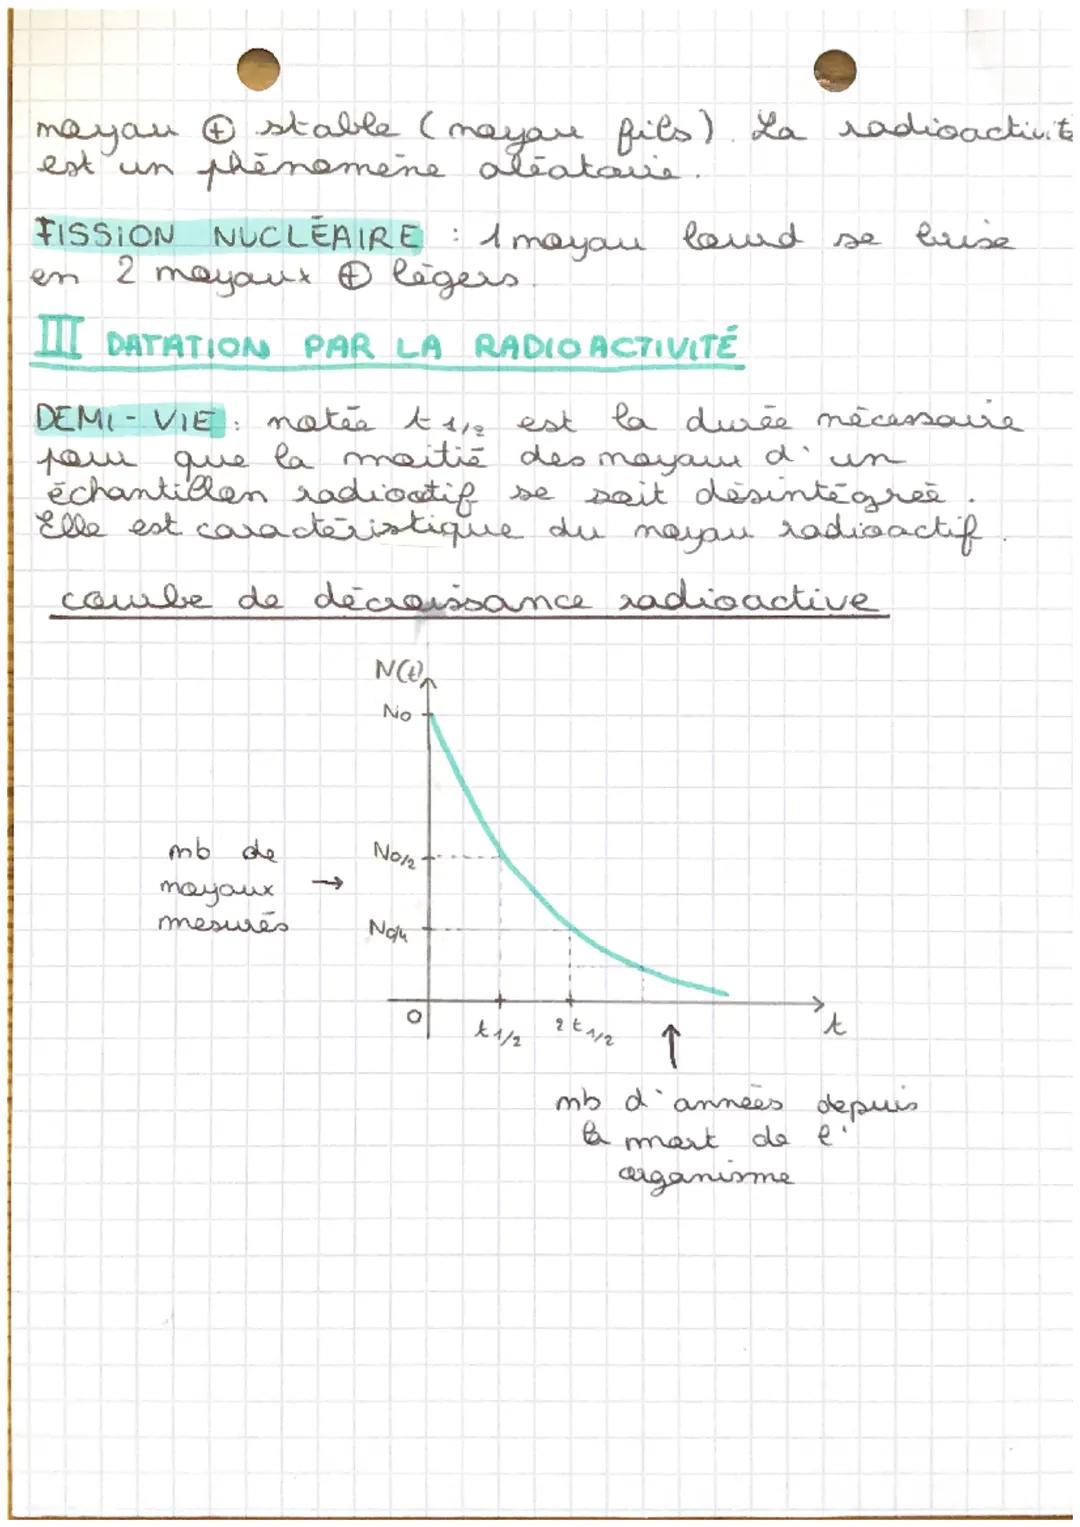 noyau ⊕ stable (noyau fils). La radioactivité
est un phénomène aléatoire.
FISSION NUCLÉAIRE : 1 noyau lourd se brise
en 2 noyaux ⊕ légers.
III DATATION PAR LA RADIOACTIVITÉ
DEMI-VIE : notée t 1/2 est la durée nécessaire
pour que la moitié des noyaux d'un
échantillon radioactif se soit désintégrée.
Elle est caractéristique du noyau radioactif.
courbe de décroissance radioactive
N(t)
No
nb de
noyaux →
mesurés
No/2
No/4
0
t 1/2
2 t 1/2
t
↑
nb d'années depuis
la mort de l'
organisme